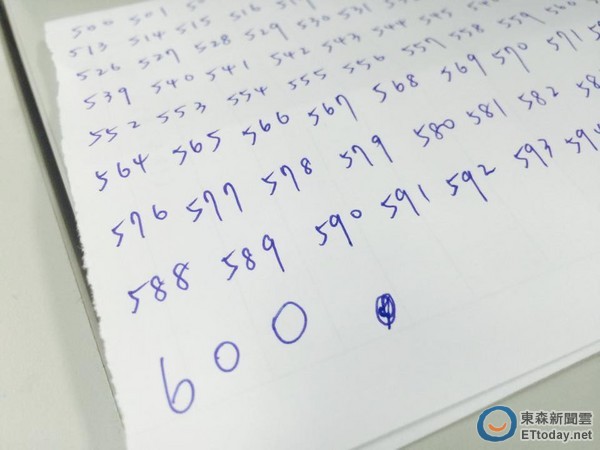 500 501
513 514 515 516
526 527 528 529 530 531
539 540 541 542 543 544 545
552 553 554 555 556 557 558 559 560
564 565 566 567 568 569 570 571
576 577 578 579 580 581 582
588 589 590 591 592 593 594
600
東森新聞雲
ETtoday.net